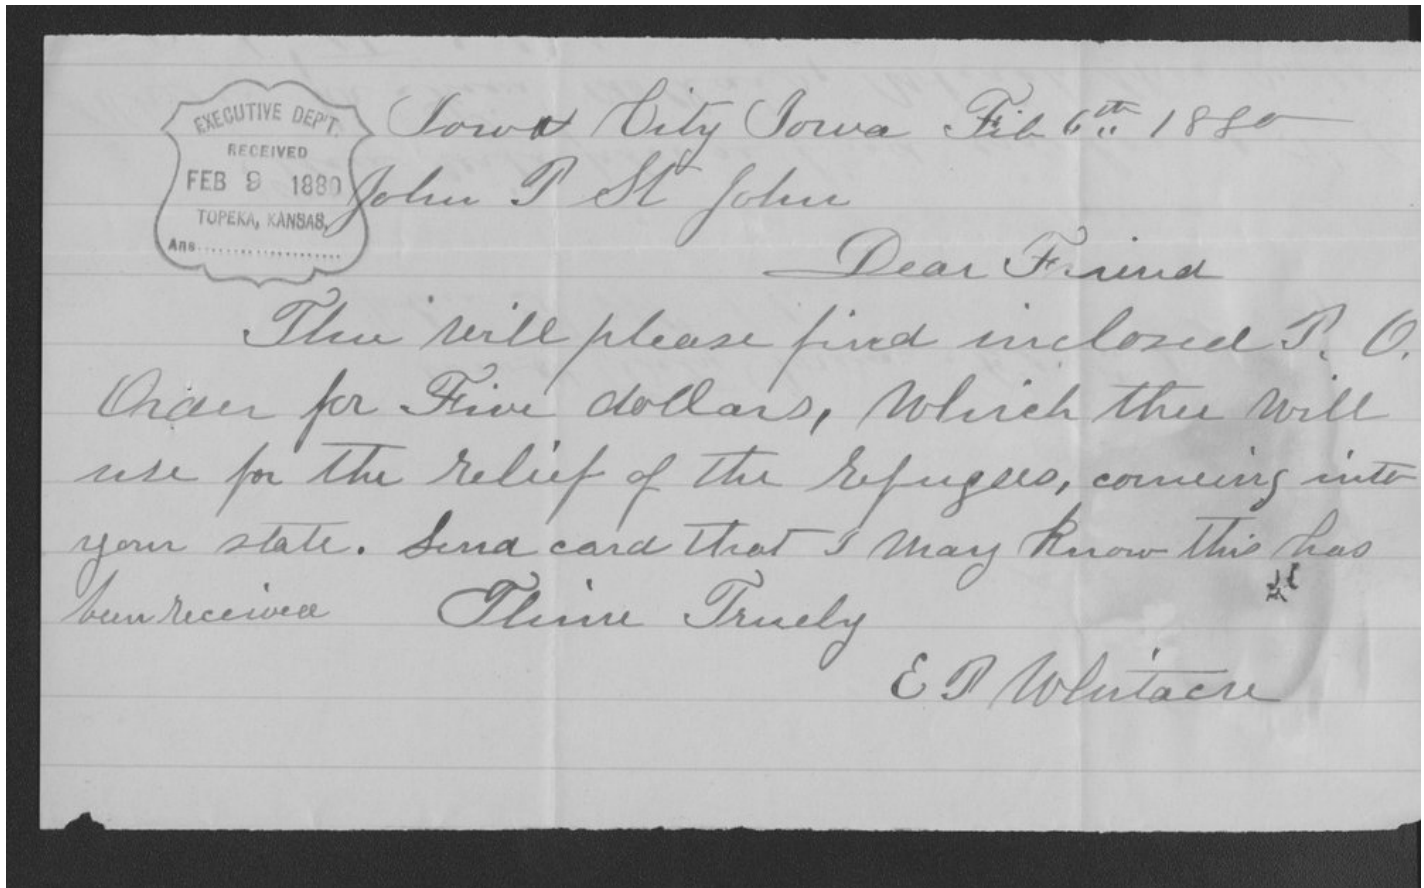 EXECUTIVE DEP'T.
RECEIVED
FEB 9 1880
TOPEKA, KANSAS,
Ans....................
Iowa City Iowa Feb 6th 1880
John P St John
Dear Friend
Thee will please find inclosed P. O.
Order for Five dollars, which thee will
use for the relief of the refugees, comeing into
your state. Send card that I may know this has
been received Thine Truely
E P Whitacre